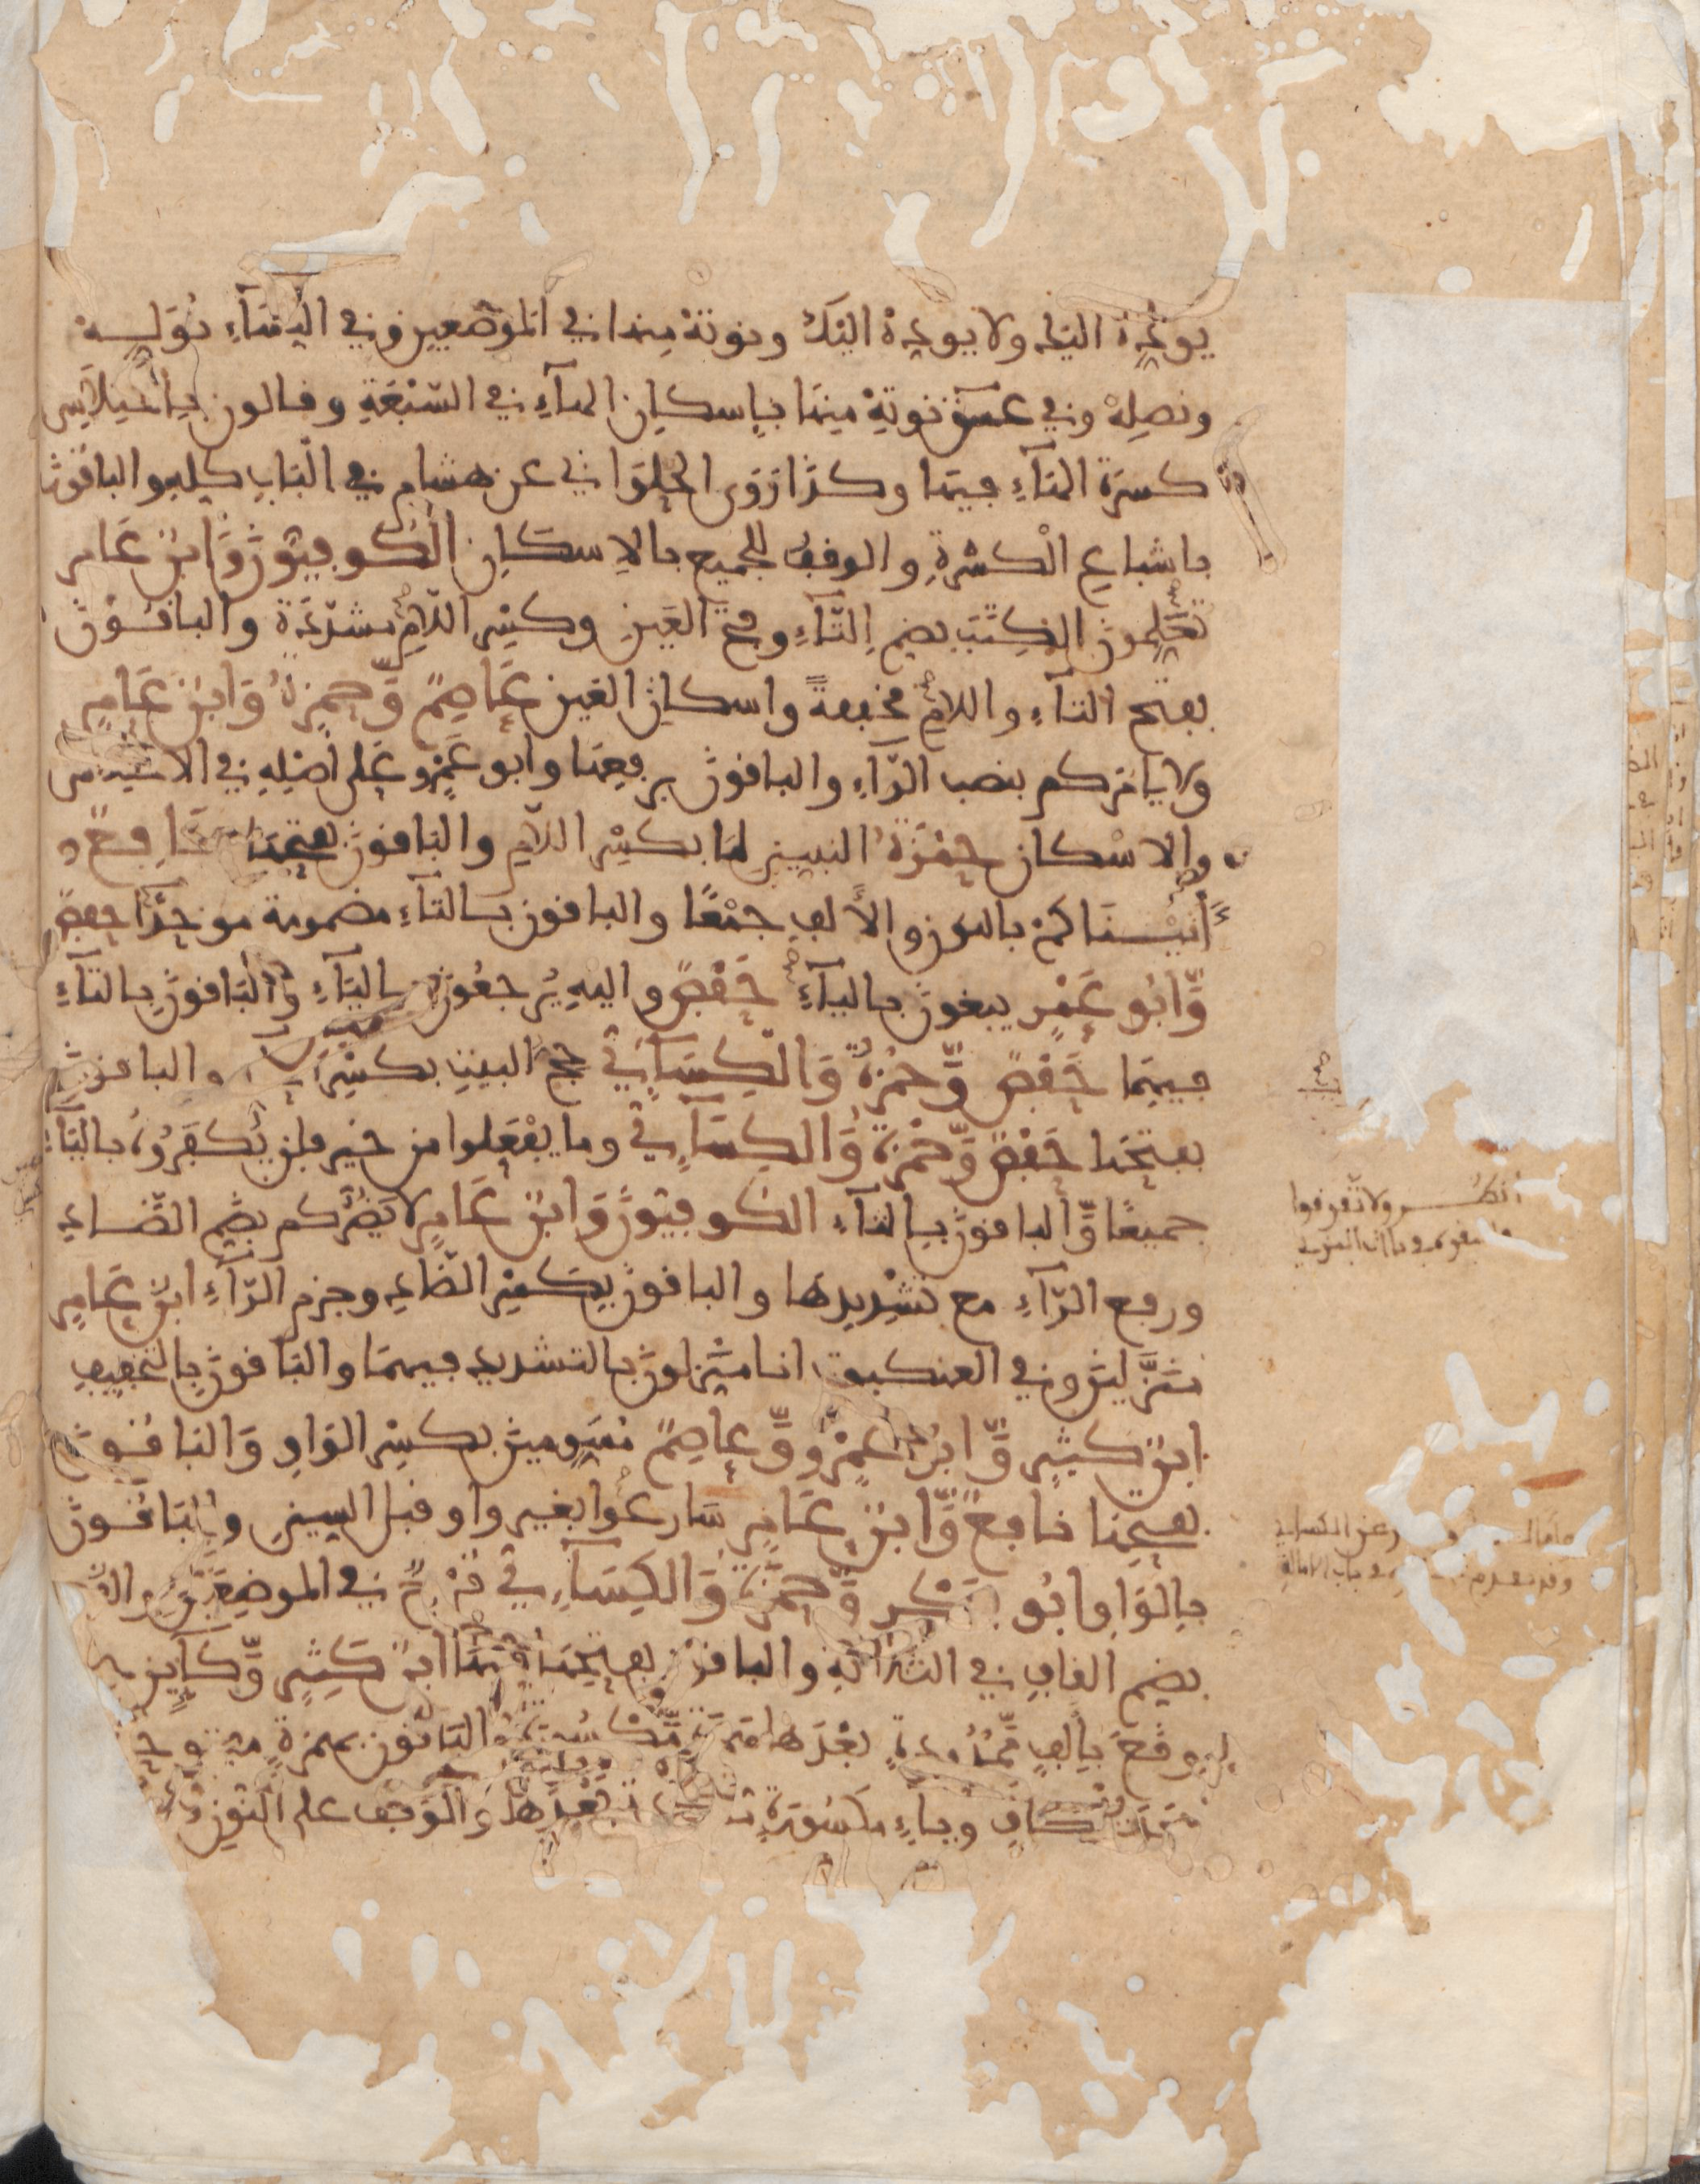 يوده اليك ولا يوده اليك ونوته منها في الموضعين وفي النساء نوله
ونصله وفي عسق نوته منها باسكان الهاء في السبعة وقالون باختلاس
كسرة الهاء فيها وكذا روى الحلواني عن هشام في الباب كله والباقون
باشباع الكسرة والوقف للجميع بالاسكان الكوفيون وابن عامر
تعلمون الكتب بضم التاء وفتح العين وكسر اللام مشددة والباقون
بفتح التاء واللام مخففة واسكان العين عاصم وحمزة وابن عامر
ولا يامركم بنصب الراء والباقون برفعها وابو عمرو على اصله في الاختلاس
والاسكان حمزة النبيين لما بكسر اللام والباقون بفتحها نافع
اتيناكم بالنون والالف جمعا والباقون بالتاء مضمومة موحدا حفص
وابو عمر يبغون بالياء حفص واليه يرجعون بالياء والباقون بالتاء
فيهما حفص وحمزة والكساءي حج البيت بكسر والباقون
بفتحها حفص وحمزة والكساءي وما يفعلوا من خير فلن يكفروه بالياء
جميعا والباقون بالتاء الكوفيون وابن عامر لا يضركم بضم الضاد
ورفع الراء مع تشديدها والباقون بكسر الضاد وجزم الراء ابن عامر
منزلين وفي العنكبوت انا منزلون بالتشديد فيهما والباقون بالتخفيف
ابن كثير وابو عمرو وعاصم مسومين بكسر الواو والباقون
بفتحها نافع وابن عامر سارعوا بغير واو قبل السين والباقون
بالواو ابو بكر وحمزة والكساءي قرح في الموضعين و
بضم القاف في الثلاثة والباقون بفتحها فيها ابن كثير وكاين
وقع بالف ممدودة بعدها همزة مكسورة والباقون بهمزة مفتوحة
بعد الكاف وياء مكسورة بعدها والوقف على النون
انظر ولا تفرقوا